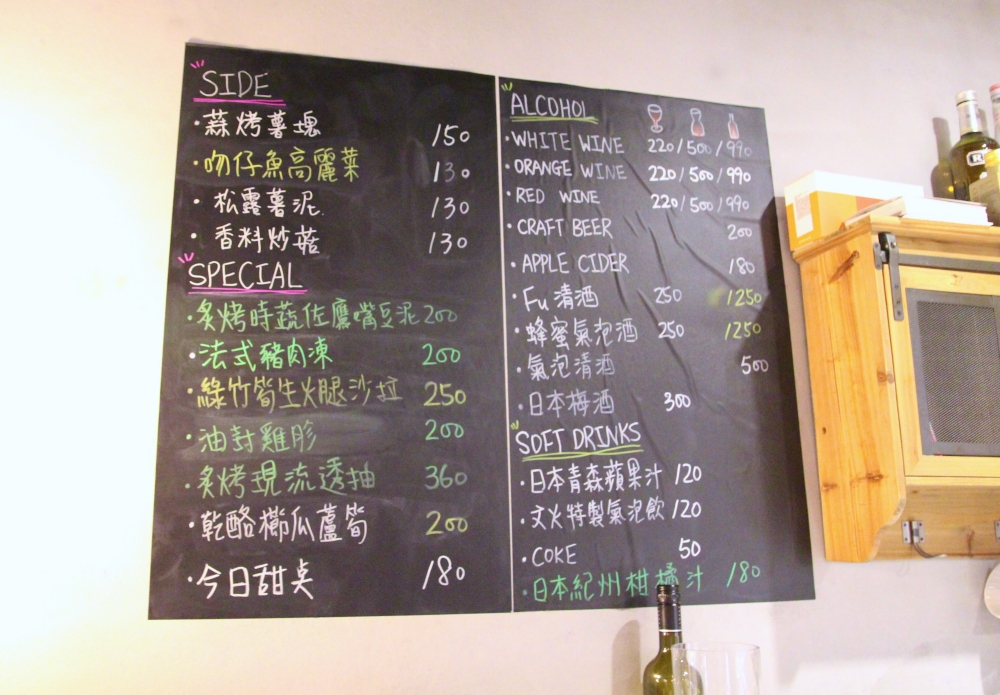 SIDE
·蒜烤薯塊 150
·吻仔魚高麗菜 130
·松露薯泥 130
·香料炒菇 130
SPECIAL
·炙烤時蔬佐鷹嘴豆泥 200
·法式豬肉凍 200
·綠竹筍生火腿沙拉 250
·油封雞胗 200
·炙烤現流透抽 360
·乾酪櫛瓜蘆筍 200
·今日甜桌 180
ALCOHOL
·WHITE WINE 220/500/990
·ORANGE WINE 220/500/990
·RED WINE 220/500/990
·CRAFT BEER 200
·APPLE CIDER 180
·Fu 清酒 250 1250
·蜂蜜氣泡酒 250 1250
·氣泡清酒 500
·日本梅酒 300
SOFT DRINKS
·日本青森蘋果汁 120
·文火特製氣泡飲 120
·COKE 50
·日本紀州柑橘汁 180